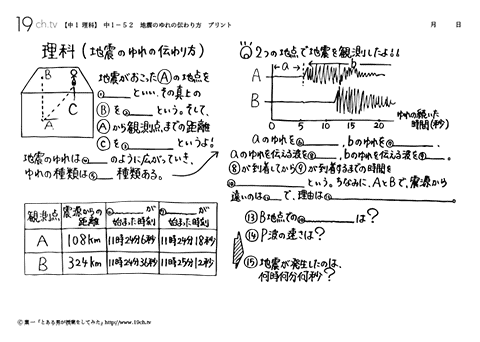 19ch.tv 【中1理科】 中1-52 地震のゆれの伝わり方 プリント 月 日
理科(地震のゆれの伝わり方)
B
C
A
地震がおこったⒶの地点を
①______といい、その真上の
Ⓑを②______という。そして、
Ⓐから観測点までの距離
Ⓒを③______というよ!
地震のゆれは④______のように広がっていき、
ゆれの種類は⑤______種類ある。
観測点 震源からの距離 ⑥______が始まった時刻 ⑦______が始まった時刻
A 108km 11時24分6秒 11時24分18秒
B 324km 11時24分36秒 11時25分12秒
2つの地点で地震を観測したよ!!
a b
A
B
0 5 10 15 20
ゆれの続いた時間(秒)
aのゆれを⑥______、bのゆれを⑦______。
aのゆれを伝える波を⑧______、bのゆれを伝える波を⑨______。
⑧が到着してから⑨が到着するまでの時間を
⑩______という。ちなみに、AとBで、震源から
遠いのは⑪______で、理由は⑫______
⑬B地点での⑩______は?
⑭P波の速さは?
⑮地震が発生したのは、
何時何分何秒?
©葉一「とある男が授業をしてみた」http://www.19ch.tv